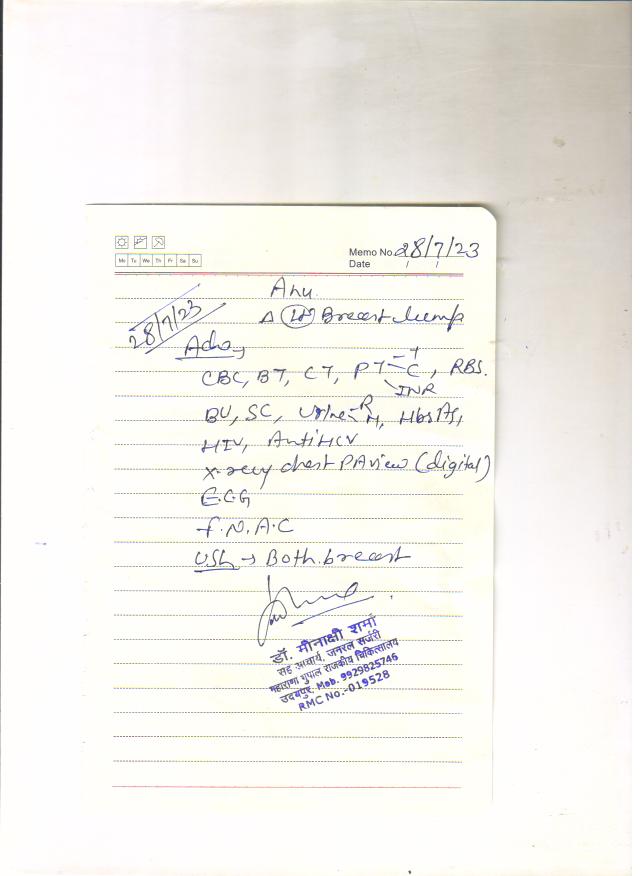 Memo No. 28/7/23
Date / /
Mo Tu We Th Fr Sa Su
Anu
28/7/23
Δ Lt Breast lump
Adv
CBC, BT, CT, PT - T C INR, RBS.
BU, SC, Urine - R M, HbsAg,
HIV, AntiHCV
X-ray chest PA view (digital)
E.C.G
F.N.A.C
USG → Both breast
डॉ. मीनाक्षी शर्मा
सह आचार्य, जनरल सर्जरी
महाराणा भुपाल राजकीय चिकित्सालय
उदयपुर. Mob. 9929825746
RMC No.-019528